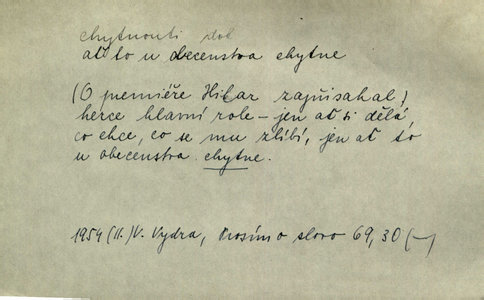 chytnouti dok
ať to u obecenstva chytne
(O premiéře Hilar zapřísahal)
herce hlavní role – jen ať si dělá,
co chce, co se mu zlíbí, jen ať to
u obecenstva chytne.
1954 (II.) V. Vydra, Prosím o slovo 69, 30 (–)